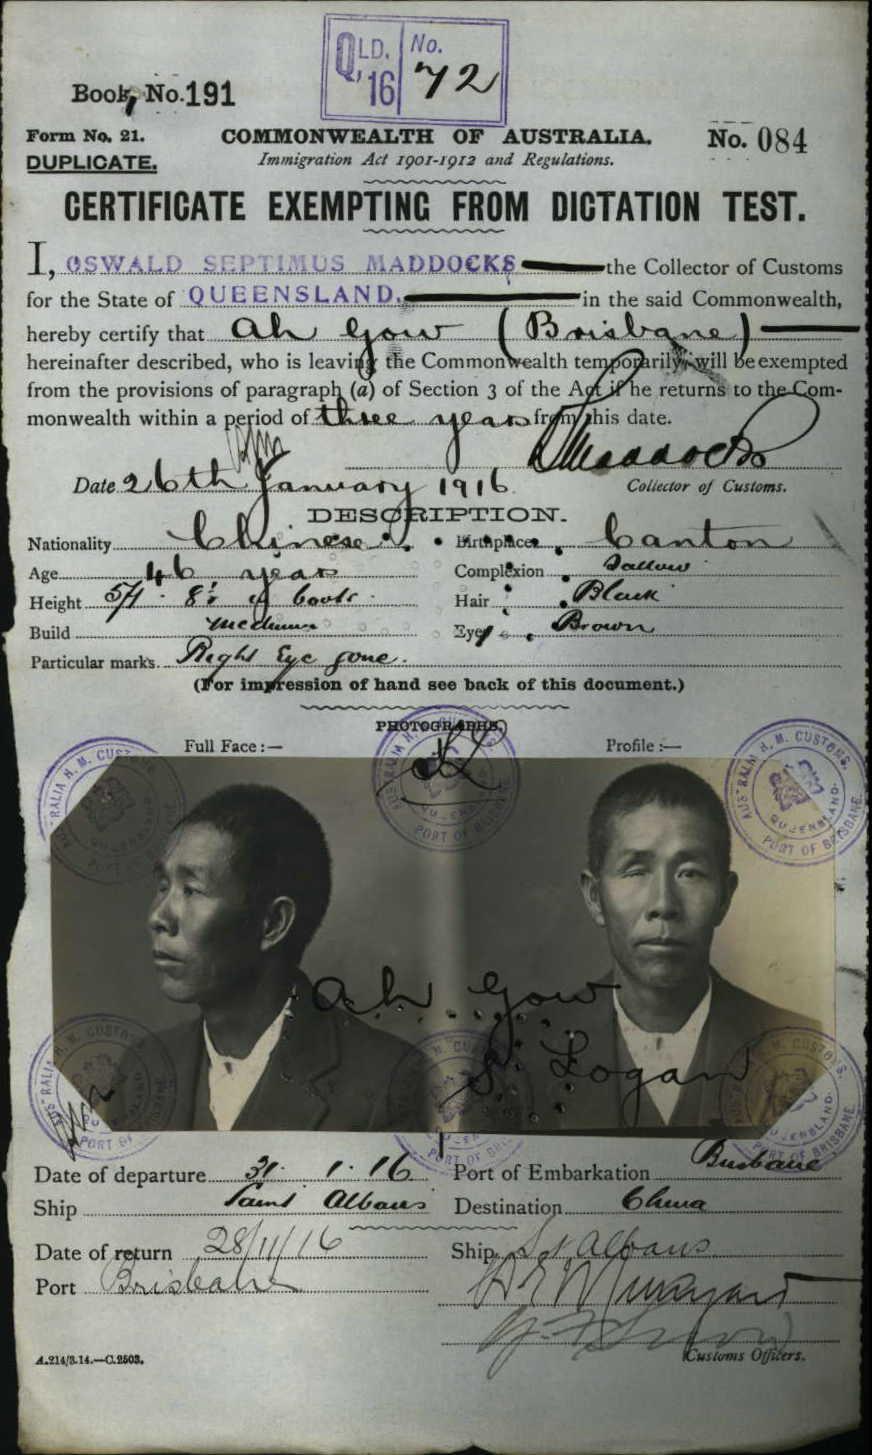 QLD. No.
16 72
Book No. 191
Form No. 21. COMMONWEALTH OF AUSTRALIA. No. 084
DUPLICATE. Immigration Act 1901-1912 and Regulations.
CERTIFICATE EXEMPTING FROM DICTATION TEST.
I, OSWALD SEPTIMUS MADDOCKS the Collector of Customs
for the State of QUEENSLAND. in the said Commonwealth,
hereby certify that Ah Gow (Brisbane)
hereinafter described, who is leaving the Commonwealth temporarily, will be exempted
from the provisions of paragraph (a) of Section 3 of the Act if he returns to the Com-
monwealth within a period of three years from this date.
Maddocks
Date 26th January 1916. Collector of Customs.
DESCRIPTION.
Nationality Chinese Birthplace Canton
Age 46 years Complexion Sallow
Height 5ft. 8in. in boots Hair Black
Build Medium Eyes Brown
Particular marks. Right Eye gone.
(For impression of hand see back of this document.)
PHOTOGRAPHS.
Full Face :— Profile :—
AUSTRALIA H. M. CUSTOMS. QUEENSLAND. PORT OF BRISBANE.
Ah Gow
S. Logan
Date of departure 31. 1. 16 Port of Embarkation Brisbane
Ship Saint Albans Destination China
Date of return 28/11/16 Ship St Albans
Port Brisbane
Customs Officers.
A.214/3.14.—C.2503.